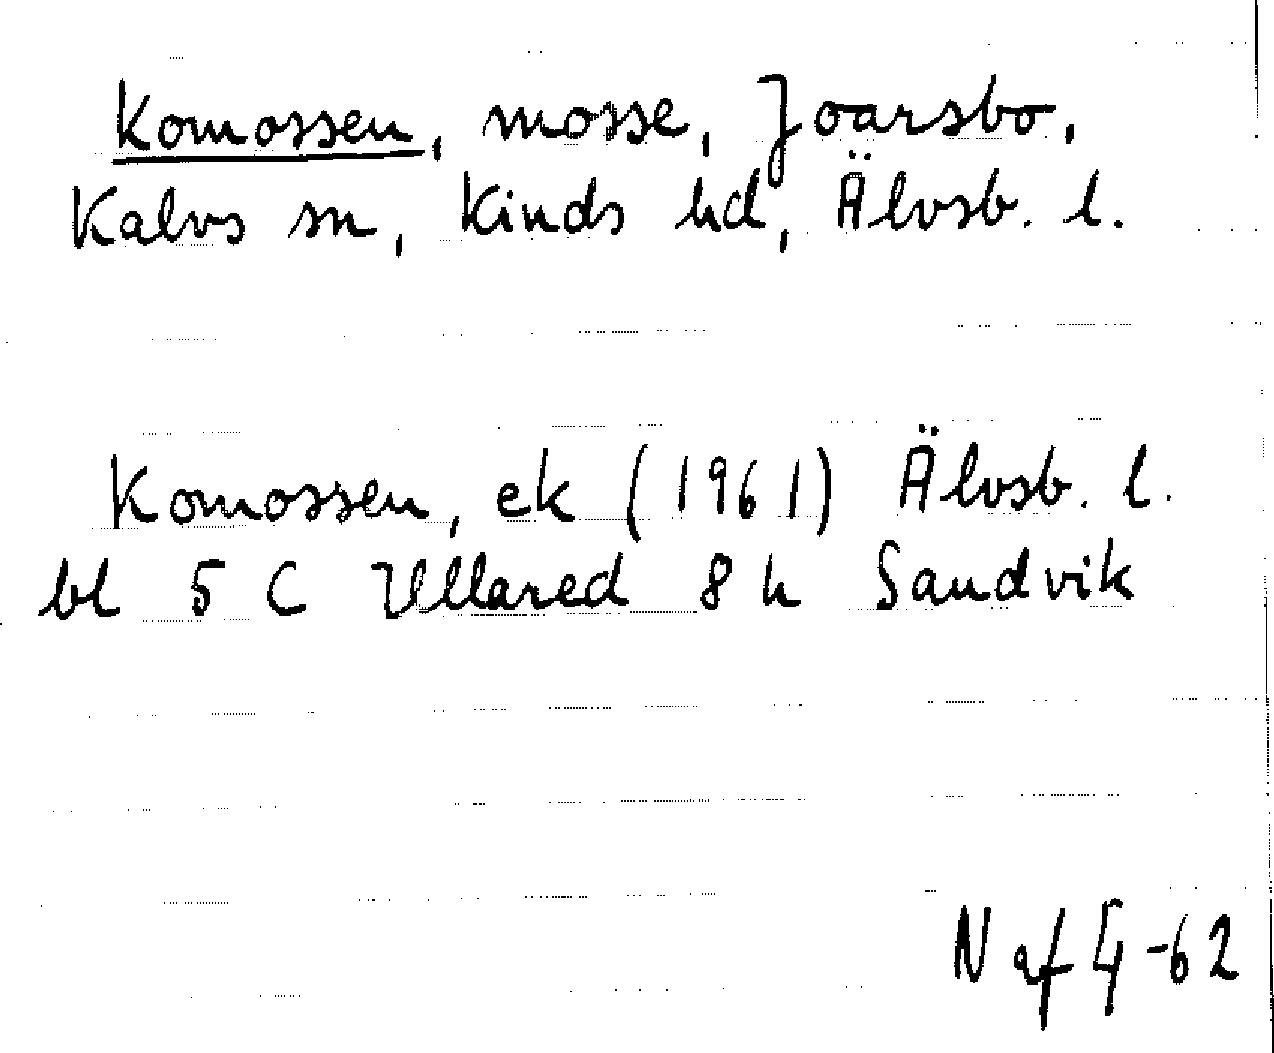 Komossen, mosse, Joarsbo,
Kalvs sn, Kinds hd, Älvsb. l.
Komossen, ek (1961) Älvsb. l.
bl 5 C Ullared 8 h Sandvik
N af G -62